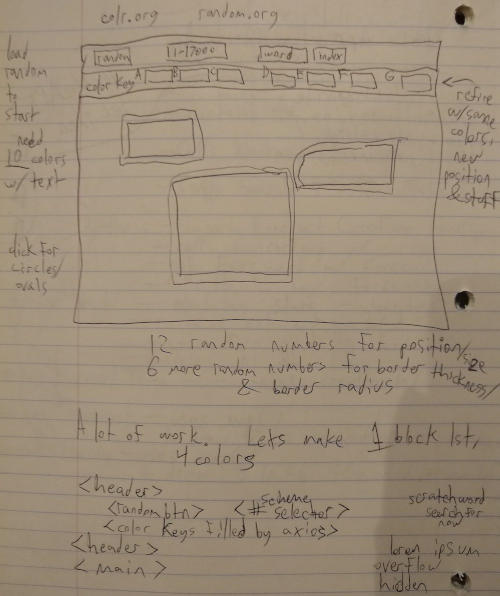 colr.org random.org
load
random
to
start
need
10 colors
w/ text
click for
circles/
ovals
random 1-17000 word index
color keys A B C D E F G
refire
w/same
colors,
new
position
& stuff
12 random numbers for position/size
6 more random numbers for border thickness/
& border radius
A lot of work. Lets make 1 block 1st,
4 colors
<header>
<random btn> <# scheme selector>
<color keys filled by axios>
<header>
<main>
scratch word
search for
now
lorem ipsum
overflow
hidden